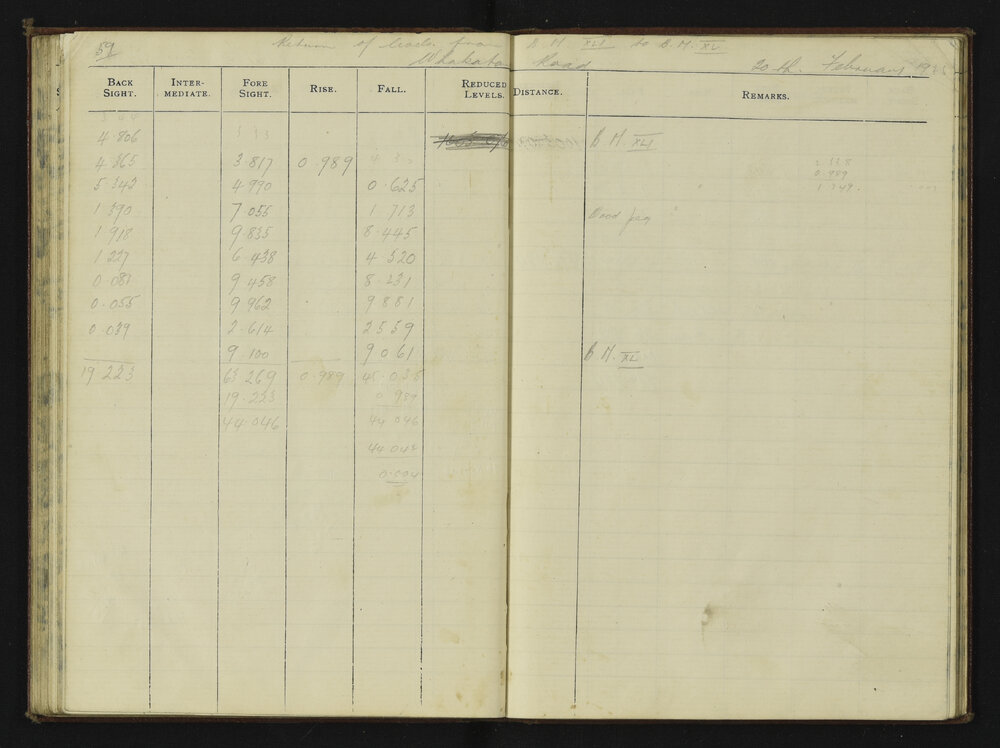 59 Return of levels from B. M. XLI to B. M. XL
Road 20 th. February
BACK SIGHT. INTER-MEDIATE. FORE SIGHT. RISE. FALL. REDUCED LEVELS. DISTANCE. REMARKS.
4.806 B M XLI
4.365 3.817 0.989
5.342 4.990 0.625
1.390 7.055 1.713 Wood peg
1.918 9.835 8.445
1.227 6.438 4.520
0.081 9.458 8.231
0.055 9.962 9.881
0.039 2.614 2.559
9.100 9.061 B M. XL
19.223 63.269 0.989 45.035
19.223 0.989
44.046 44.046
44.042
0.004